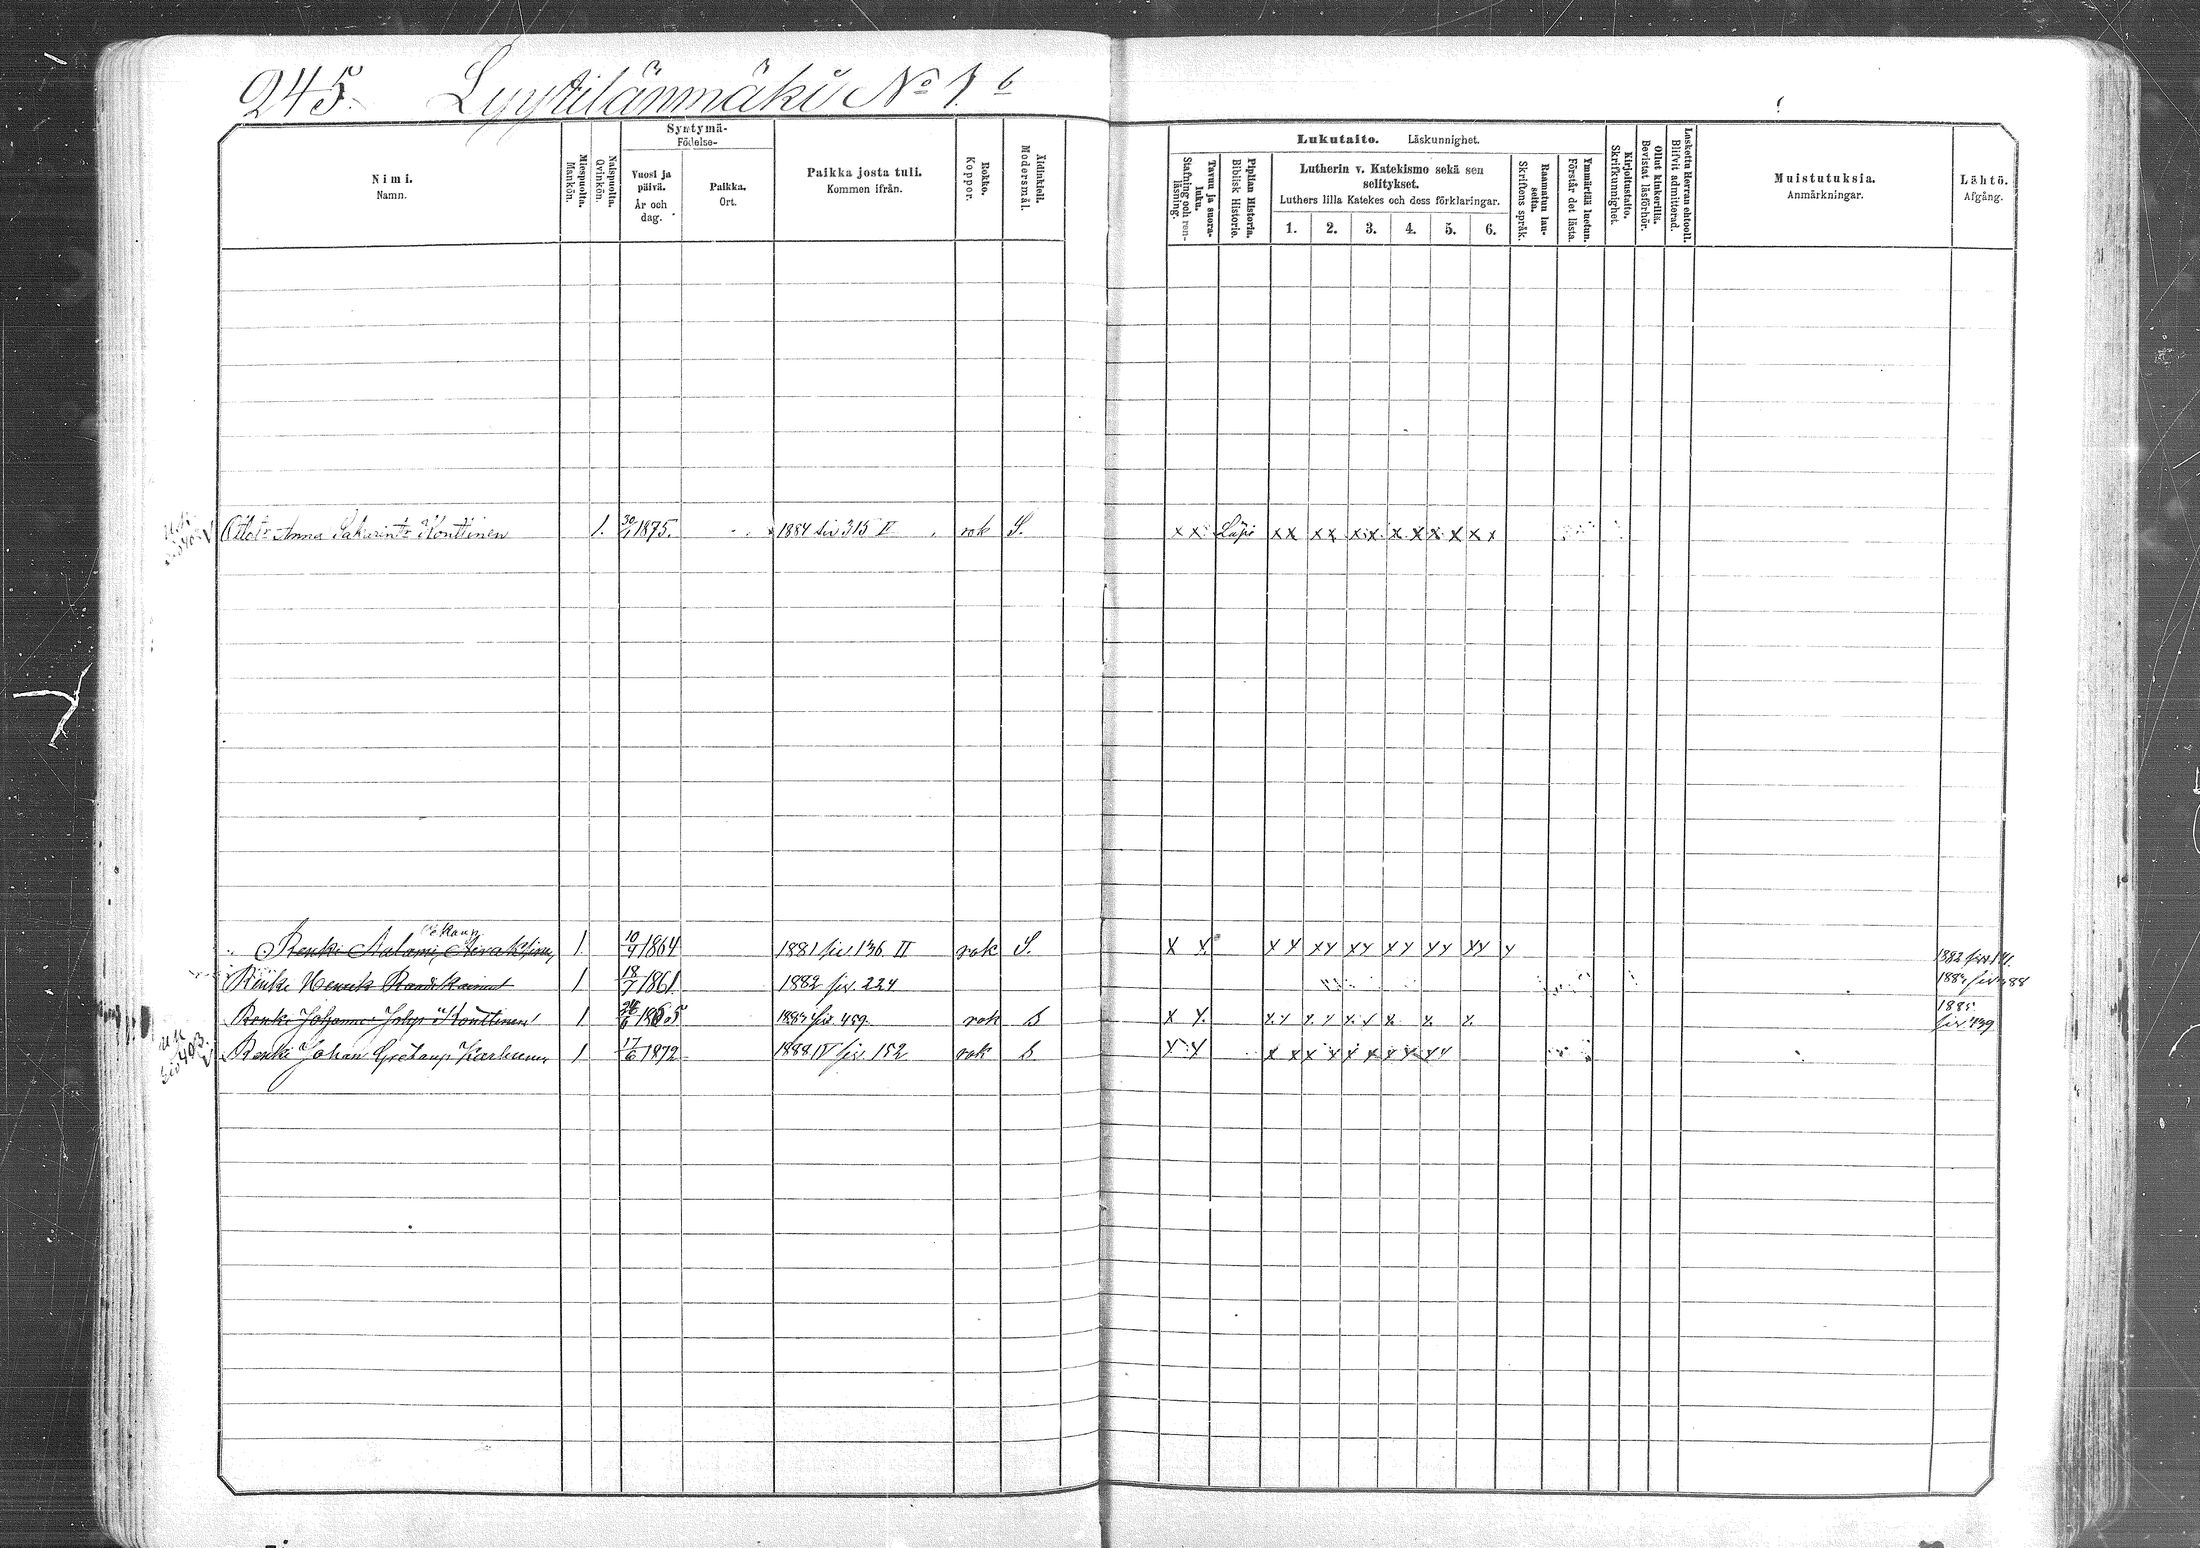 245. Lyytilänmäki No 1. b
Nimi.
Namn.
Miespuolta.
Mankön.
Naispuolta.
Qvinkön.
Syntymä-
Födelse-
Vuosi ja päivä.
År och dag.
Paikka.
Ort.
Paikka josta tuli.
Kommen ifrån.
Rokko.
Koppor.
Äidinkieli.
Modersmål.
Lukutaito. Läskunnighet.
Tavuu ja suora- luku.
Stafning och ren- läsning.
Piplian Historia.
Biblisk Historie.
Lutherin v. Katekismo sekä sen selitykset.
Luthers lilla Katekes och dess förklaringar.
1. 2. 3. 4. 5. 6.
Raamatun lau- seita.
Skriftens språk.
Ymmärtää luetun.
Förstår det lästa.
Kirjoitustaito.
Skrifkunnighet.
Ollut kinkerillä.
Bevistat läsförhör.
Laskettu Herran ehtooll.
Blifvit admitterad.
Muistutuksia.
Anmärkningar.
Lähtö.
Afgång.
Anna Konttinen 1. 30/1 1875. 1884 siv 315 II rok S. x x Läpi x x x x x x x x x x x x
Renki 1. 10/9 1864 1881 siv 136 II rok S. x x x x x x x x x x x x x x x
Renki 1 18/7 1861 1882 siv. 224
Renki Johannes Konttinen 1 1865 siv. 459. rok S x x x x x x x x x x x 1885 siv. 439
Renki Johan Karhunen 1 17/6 1872 1888 IV siv. 152 rok S x x x x x x x x x x x x
siv 403. V